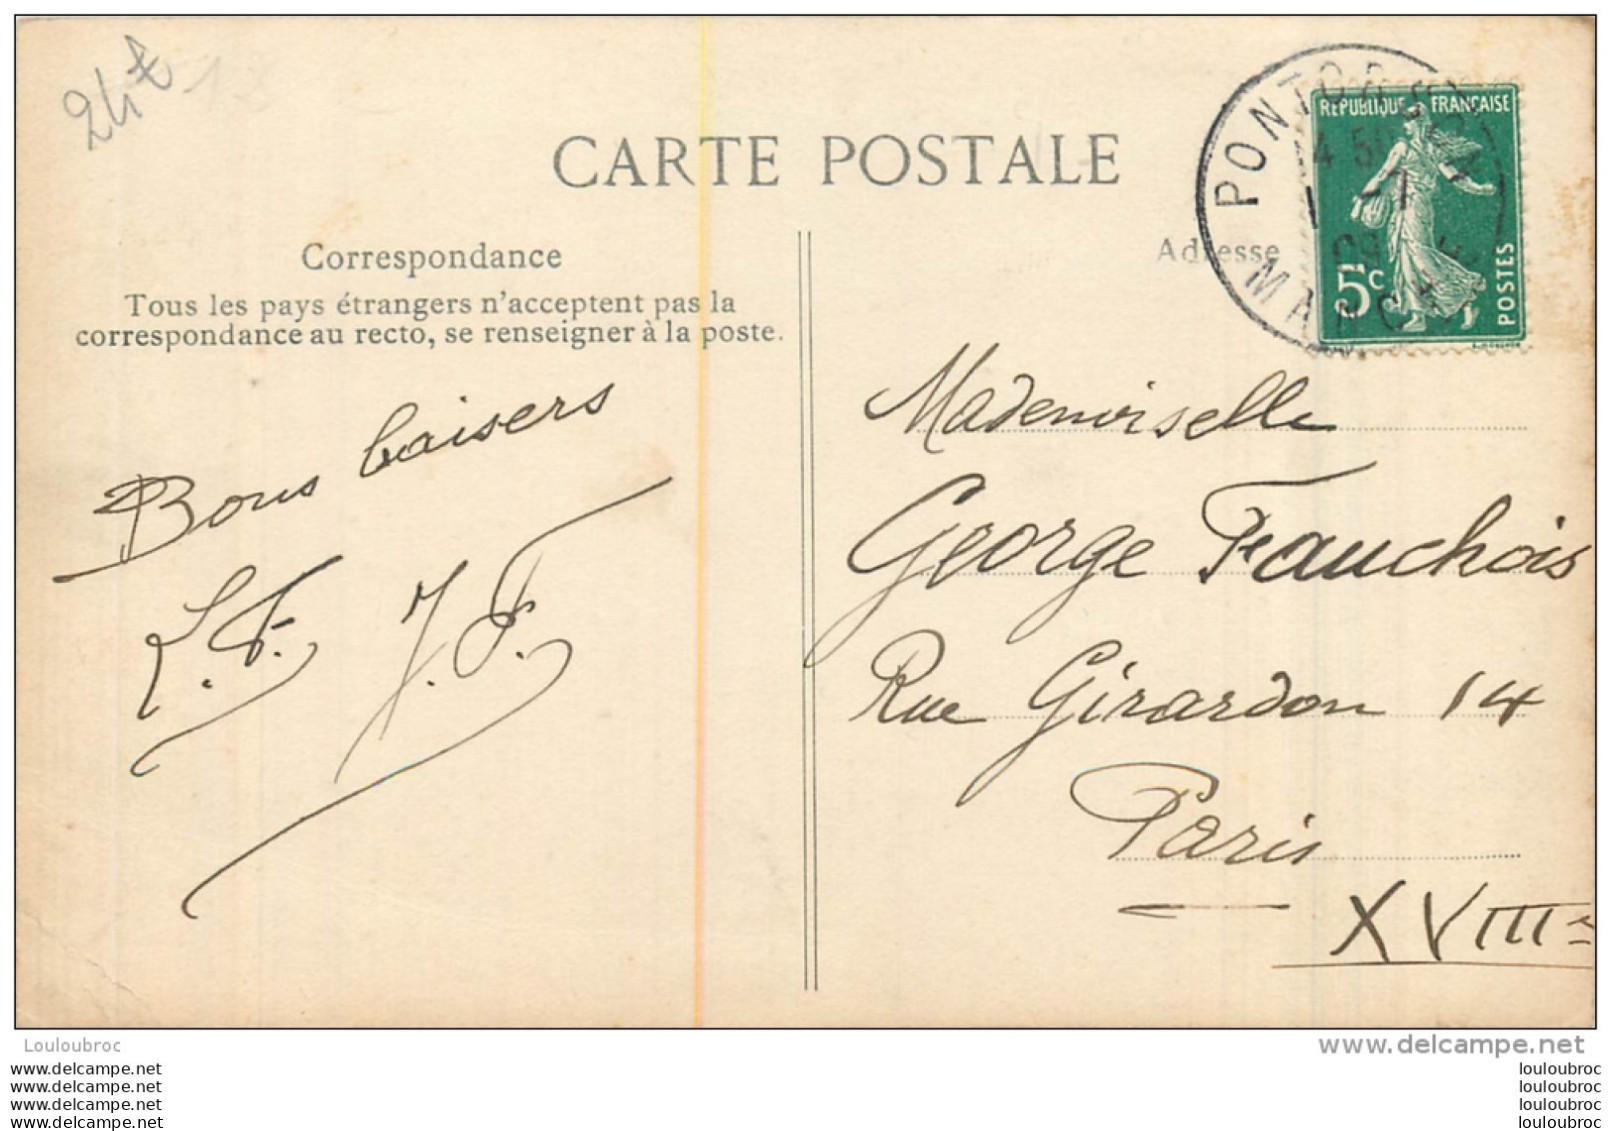 24€
18
CARTE POSTALE
PONTORSON
MANCHE
4 50
1 -7
09
RÉPUBLIQUE FRANÇAISE
5c
POSTES
Correspondance
Adresse
Tous les pays étrangers n'acceptent pas la
correspondance au recto, se renseigner à la poste.
Bons baisers
L.F. J.F.
Mademoiselle
George Fauchois
Rue Girardon 14
Paris
XVIIIe
Louloubroc
www.delcampe.net
www.delcampe.net
www.delcampe.net
www.delcampe.net
www.delcampe.net
louloubroc
louloubroc
louloubroc
louloubroc